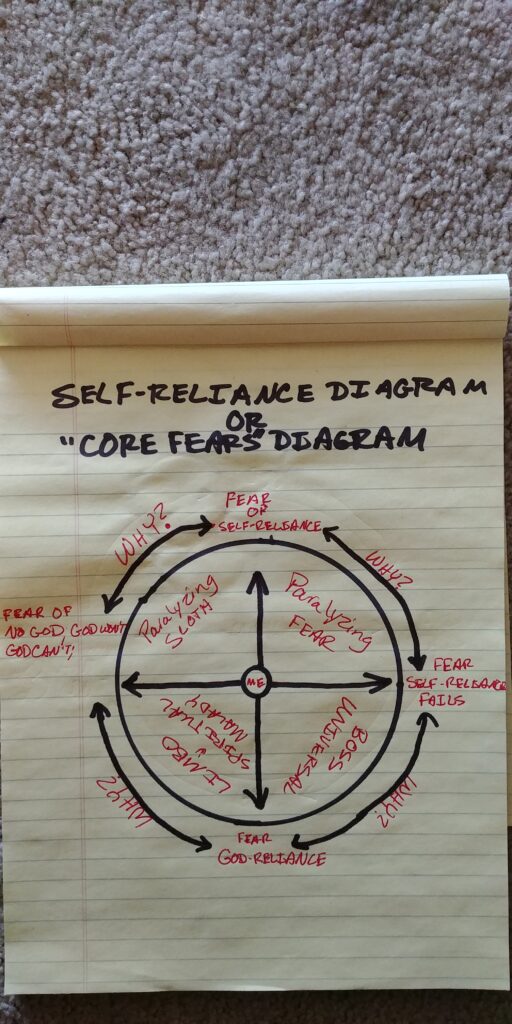 SELF-RELIANCE DIAGRAM
OR
"CORE FEARS" DIAGRAM
FEAR
OF
SELF-RELIANCE
WHY?
WHY?
FEAR OF
NO GOD, GOD WON'T
GOD CAN'T;
Paralyzing
SLOTH
Paralyzing
FEAR
ME
FEAR
SELF-RELIANCE
FAILS
SPIRITUAL
MALADY
LIMBO
BOSS
UNIVERSAL
WHY?
WHY?
FEAR
GOD-RELIANCE